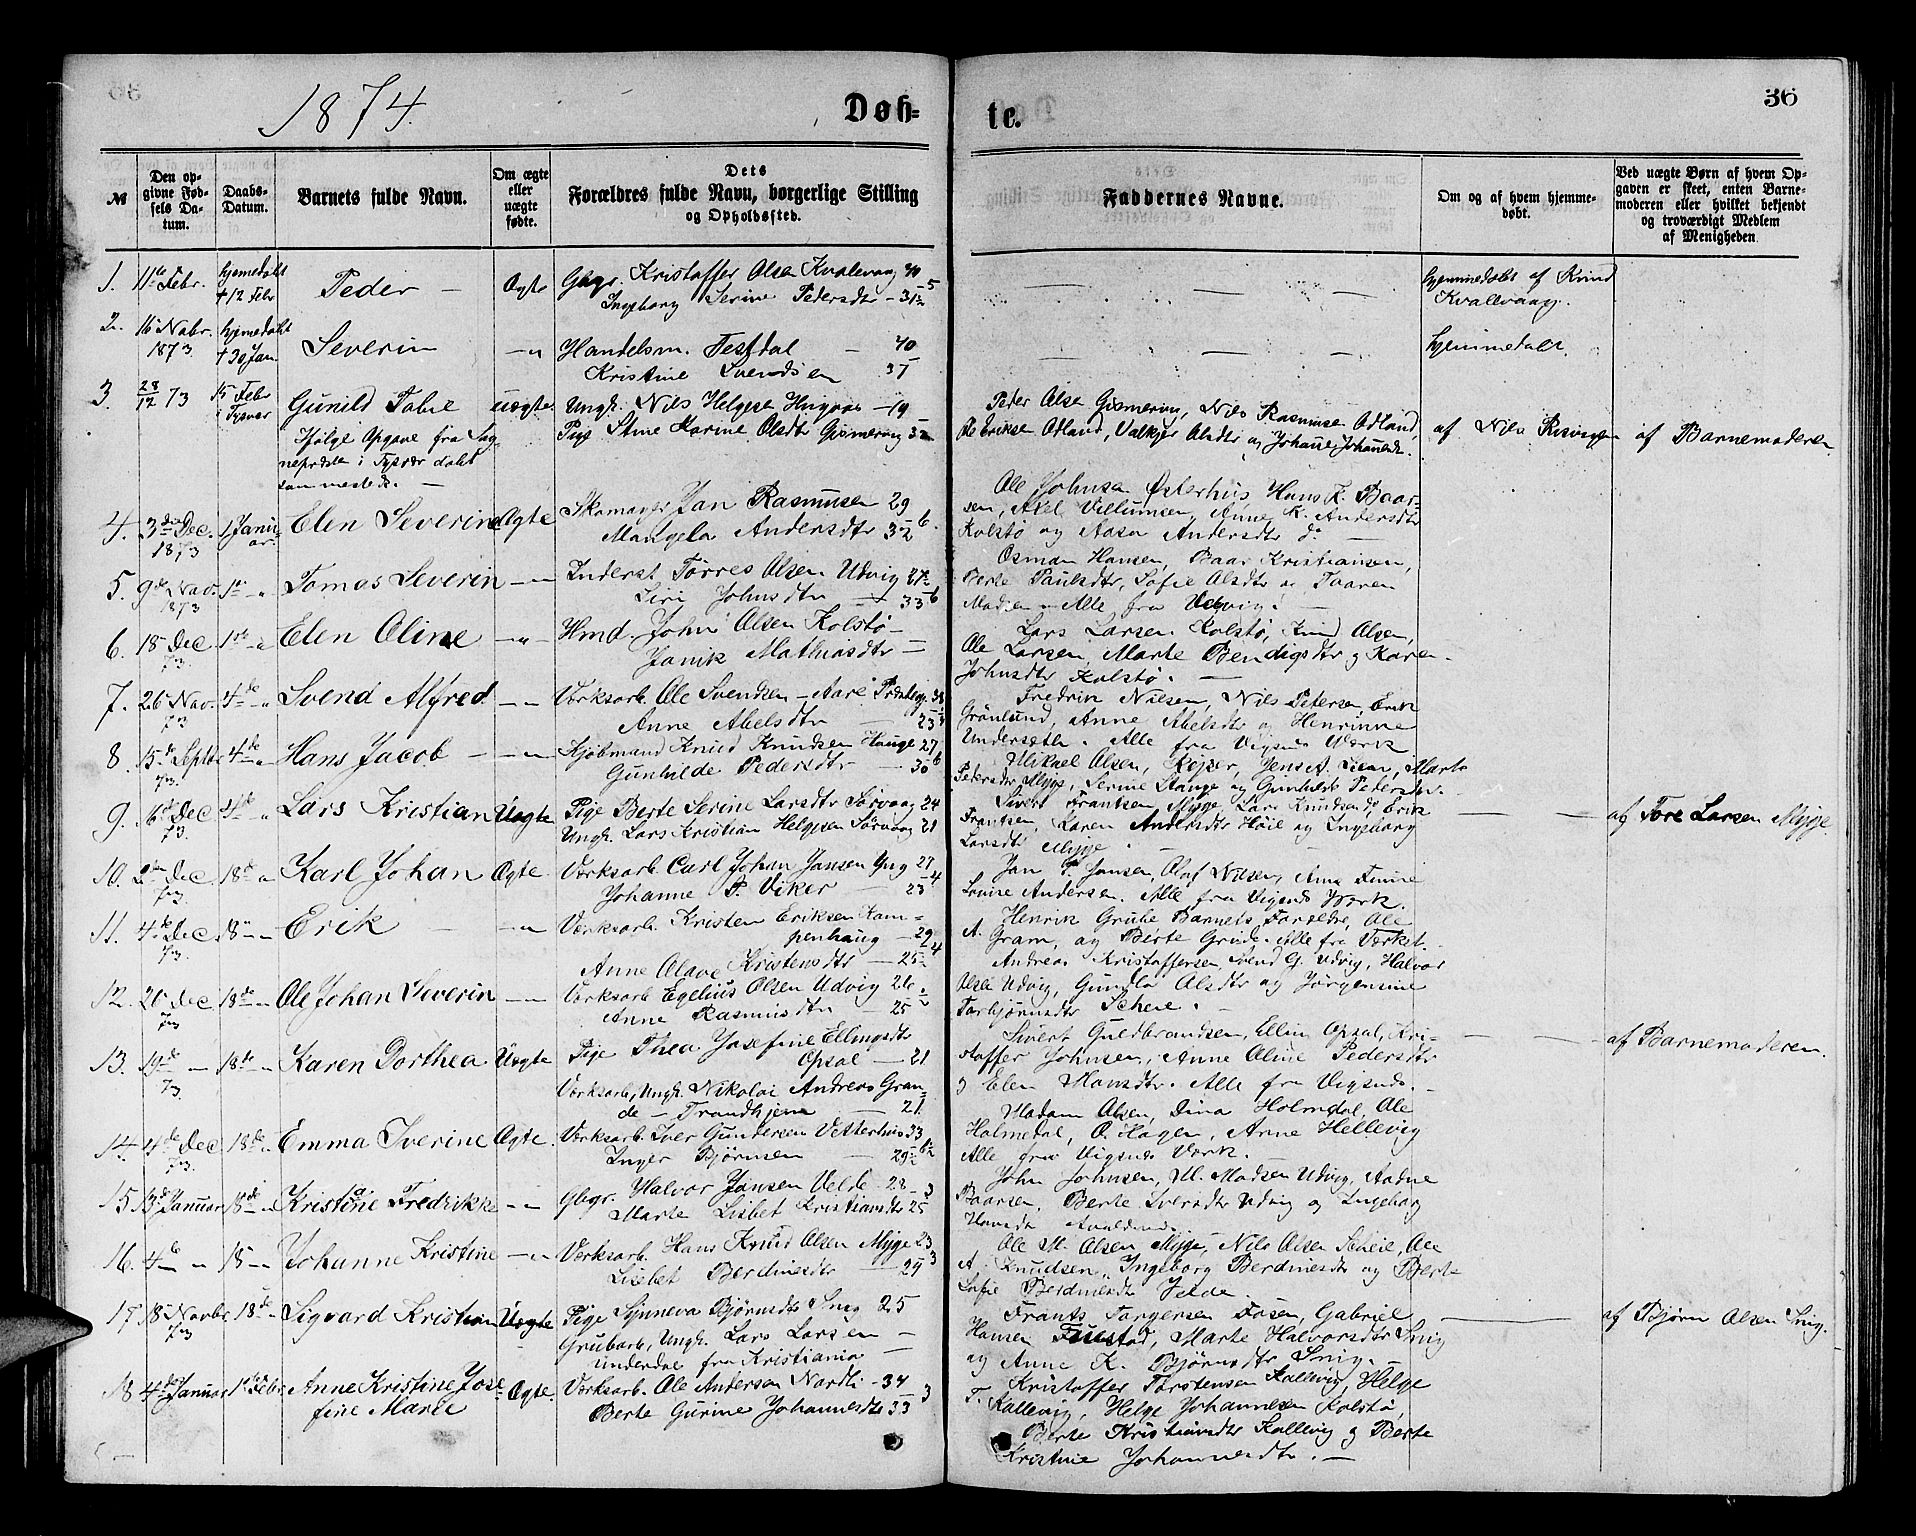 1874.
Døb-
te.
36
№
Den op-
givne Fød-
sels Da-
tum.
Daabs-
Datum.
Barnets fulde Navn.
Om ægte
eller
uægte
fødte.
Dets
Forældres fulde Navn, borgerlige Stilling
og Opholdssted.
Faddernes Navne.
Om og af hvem hjemme-
døbt.
Ved uægte Børn af hvem Op-
gaven er skeet, enten Barne-
moderen eller hvilket bekjendt
og troværdigt Medlem
af Menigheden
1. 11te Febr. hjemedøbt † 12 Febr Peder — Ægte
Gbgr. Kristoffer Olsen Kvalevaag 40
Ingeborg Serine Pedersdtr - 31
hjemmedøbt af Knud
Kvallevaag.
2. 16 Nobr. 1873 hjemedøbt † 30 Jan. Severin — " —
Handelsm. Testdal — 40
Kristine Svendsen 37
hjemmedøbt.
3. 28/12 73 15 Febr i Tysvær Gunild Tobie uægte.
Ifølge Opgave fra Sog-
nepræsten i Tysvær døbt
sammesteds. —
Ungk. Nils Helgesen — 19
Pige Stine Karine Olsdtr Gismervig 32
Peder Olsen Gismervig, Nils Rasmusen Odland,
Eriksen Odland, Valkjer Olsdtr og Johanne Johannesdtr.
af Nils
af Barnemoderen
4. 3die Dec. 1873 1 Januar. Elen Severine Ægte
Skomager Jan Rasmusen 29
Mangela Andersdtr 32 6.
Ole Johnsen Østerhus, Hans K. Baar-
sen, Axel Villumsen, Anne K. Andersdtr
Kolstø og Aasa Andersdtr do —
5. 9de Nov. 1873 1ste " Tomas Severin — " —
Inderst Torres Olsen Udvig 27
Siri Johnsdtr — 33 6
Osmon Hansen, Baar Kristiansen,
Berte Paulsdtr, Sofie Olsdtr og Taaren
Madsen — Alle fra Udvig. —
6. 18 Dec 73. 1ste " Elen Oline — " —
Hmd. John Olsen Kolstø —
Janik Mathiasdtr —
Lars Larsen Kolstø, Knud Olsen,
Ole Larsen, Marte Bendigsdtr og Karen
Johnsdtr Kolstø. —
7. 26 Nov. 73 4de " Svend Alfred — " —
Værksarb. Ole Svendsen — 38
Anne Abelsdtr — 23
Fredrik Nilsen, Nils Petersen, Erik
Grönlund, Anne Abelsdtr og Henrinne
Undersæth. Alle fra Vigsnes Værk
8. 15de Septbr 73. 4de " Hans Jacob — — " —
Kjöbmand Knud Knudsen Hauge 27
Gunhilde Pedersdtr — 30 6
Mikael Olsen, Marte
Petersdtr Mygge, Serine Stange og Gunhilde Pedersdtr. —
9. 16de Dec 73. 4de " Lars Kristian Uægte
Pige Berte Serine Larsdtr Sörvaag 24
Ungk. Lars Kristian Helgesen Sörvaag 21
Sivert Frantsen Mygge, Lars Knudsen do, Erik
Frantsen, Karen Andersdtr Høie og Ingeborg
Larsdtr Mygge. —
af Tore Larsen Mygge.
10. Dec 73. 18de " Karl Johan Ægte.
Værksarb. Carl Johan Jansen 27
Johanne P. Viker — 23 4
Jan Jansen, Olaf Nilsen, Anna
Lovine Andersen. Alle fra Vigsnes Værk.
11. 4de Dec 73. 18 " Erik — — " —
Værksarb. Kristen Eriksen Kam-
penhaug — 29
Anne Olave Kristensdtr — 25 4
Henrik Grube Barnets Forældre, Ole
A. Gram, og Berte Grude. Alle fra Værket.
12. 20 Dec 73 18de " Ole Johan Severin — " —
Værksarb Egelius Olsen Udvig 26
Anne Rasmusdtr — 25
Andreas Kristoffersen, Svend G. Udvig, Halvor
Olsen Udvig, Gundla Olsdtr og Jørgensine
Torbjørnsdtr Scheie.
13. 19de — 73. 18de " Karen Dorthea Uægte
Pige Thea Josefine Ellingsdtr
Opsal — 21
Værksarb, Ungk. Nikolai Andreas Gran-
de — Trondhjem — 21.
Sivert Guldbrandsen, Ellin Opsal, Kri-
stoffer Johnsen, Anne Oline Pedersdtr
og Elen Hansdtr. Alle fra Vigsnes. —
af Barnemoderen.
14. 4de Dec 73. 18de " Emma Iverine Ægte.
Værksarb. Iver Gundersen Vetterhus 33
Inger Bjørnsen — 29
Madam Olsen, Dina Holmedal, Ole
Holmedal, O. Hagen, Arne Hellevig
Alle fra Vigsnes Værk. —
15. 3de Januar 18de " Kristine Fredrikke — " —
Gbgr. Halvor Jansen Velde - 28
Marte Lisbet Kristiansdtr 25 3
John Johnsen, M. Madsen Udvig, Aadne
Baarsen, Berte Sversdtr Udvig og Ingeborg
16. 4de — " 18 — " Johanne Kristine — " —
Værksarb. Hans Knud Olsen Mygge 23
Lisbet Berdinesdtr — 29 3
Ole M. Olsen Mygge, Nils Olsen Scheie, Ole
A. Knudsen, Ingeborg Berdinesdtr og Berte
Sofie Berdinesdtr Velde.
17. 18 Novbr 73 18de " Sigvard Kristian Uægte
Pige Synneva Bjørnsdtr Snig 25
Grubarb, Ungk. Lars Larsen —
Underdal fra Kristiania —
Frants Torgersen Fosen, Gabriel
Hansen Fuustad, Marte Halvorsdtr Snig
og Anne K. Bjørnsdtr Snig. —
af Bjørn Olsen Snig.
18 4de Januar 1ste Febr Anne Kristine Jose-
fine Marie Ægte.
Værksarb. Ole Andersen Nordli - 34
Berte Gurine Johannesdtr 33 3
Kristoffer Torstensen Kallevig, Helge
T. Kallevig, Helge Johannesen Kolstø,
Berte Kristiansdtr Kallevig og Berte
Kristine Johannesdtr. —